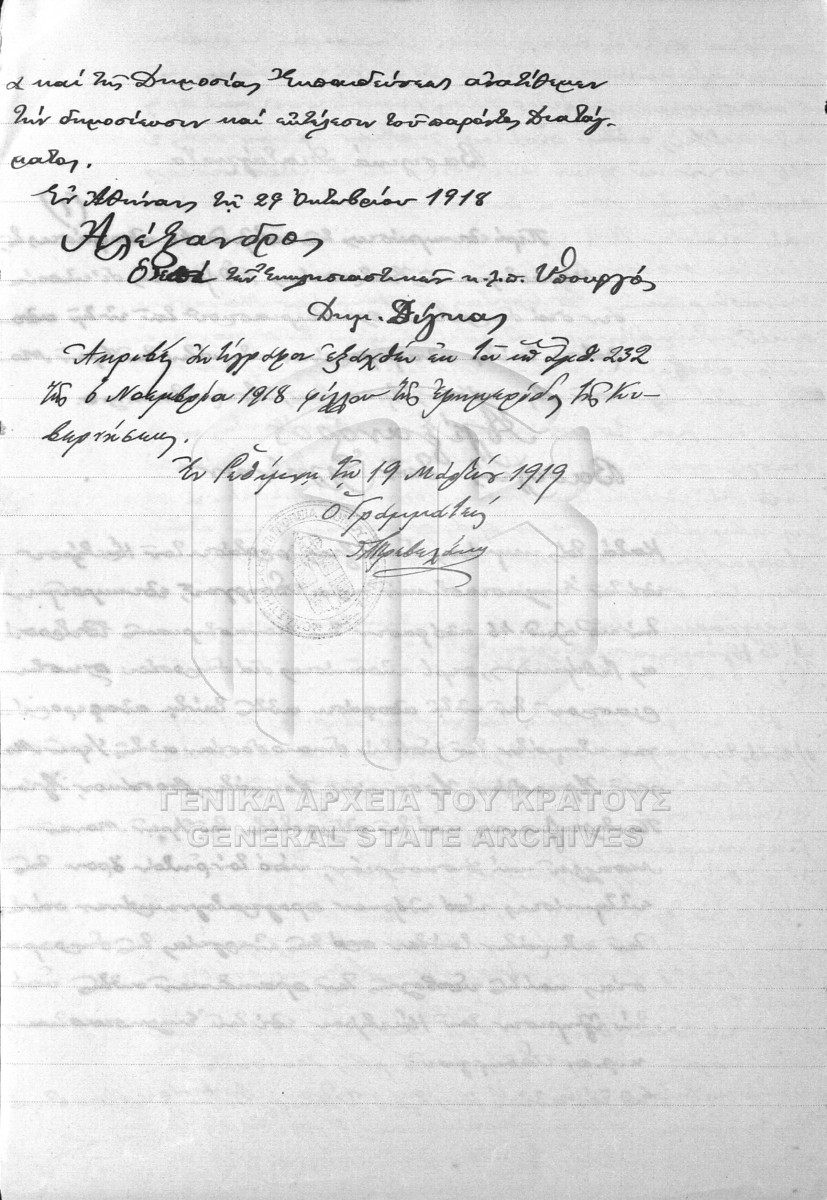 καὶ τῆς Δημοσίας Ἐκπαιδεύσεως ἀνατίθεμεν
τὴν δημοσίευσιν καὶ ἐκτέλεσιν τοῦ παρόντος Διατάγ-
ματος.
Ἐν Ἀθήναις τῇ 29 Ὀκτωβρίου 1918
Ἀλέξανδρος
Ὁ ἐπὶ τῶν Ἐκκλησιαστικῶν κ.λ.π. Ὑπουργός
Δημ. Δίγκας
Ἀκριβὲς ἀντίγραφον ἐξαχθὲν ἐκ τοῦ ὑπ' ἀριθ. 232
τῆς 6 Νοεμβρίου 1918 φύλλου τῆς Ἐφημερίδος τῆς Κυ-
βερνήσεως.
Ἐν Ρεθύμνῃ τῇ 19 Μαρτίου 1919
Ὁ Γραμματεύς
Πρεβελάκης
ΓΕΝΙΚΑ ΑΡΧΕΙΑ ΤΟΥ ΚΡΑΤΟΥΣ
GENERAL STATE ARCHIVES